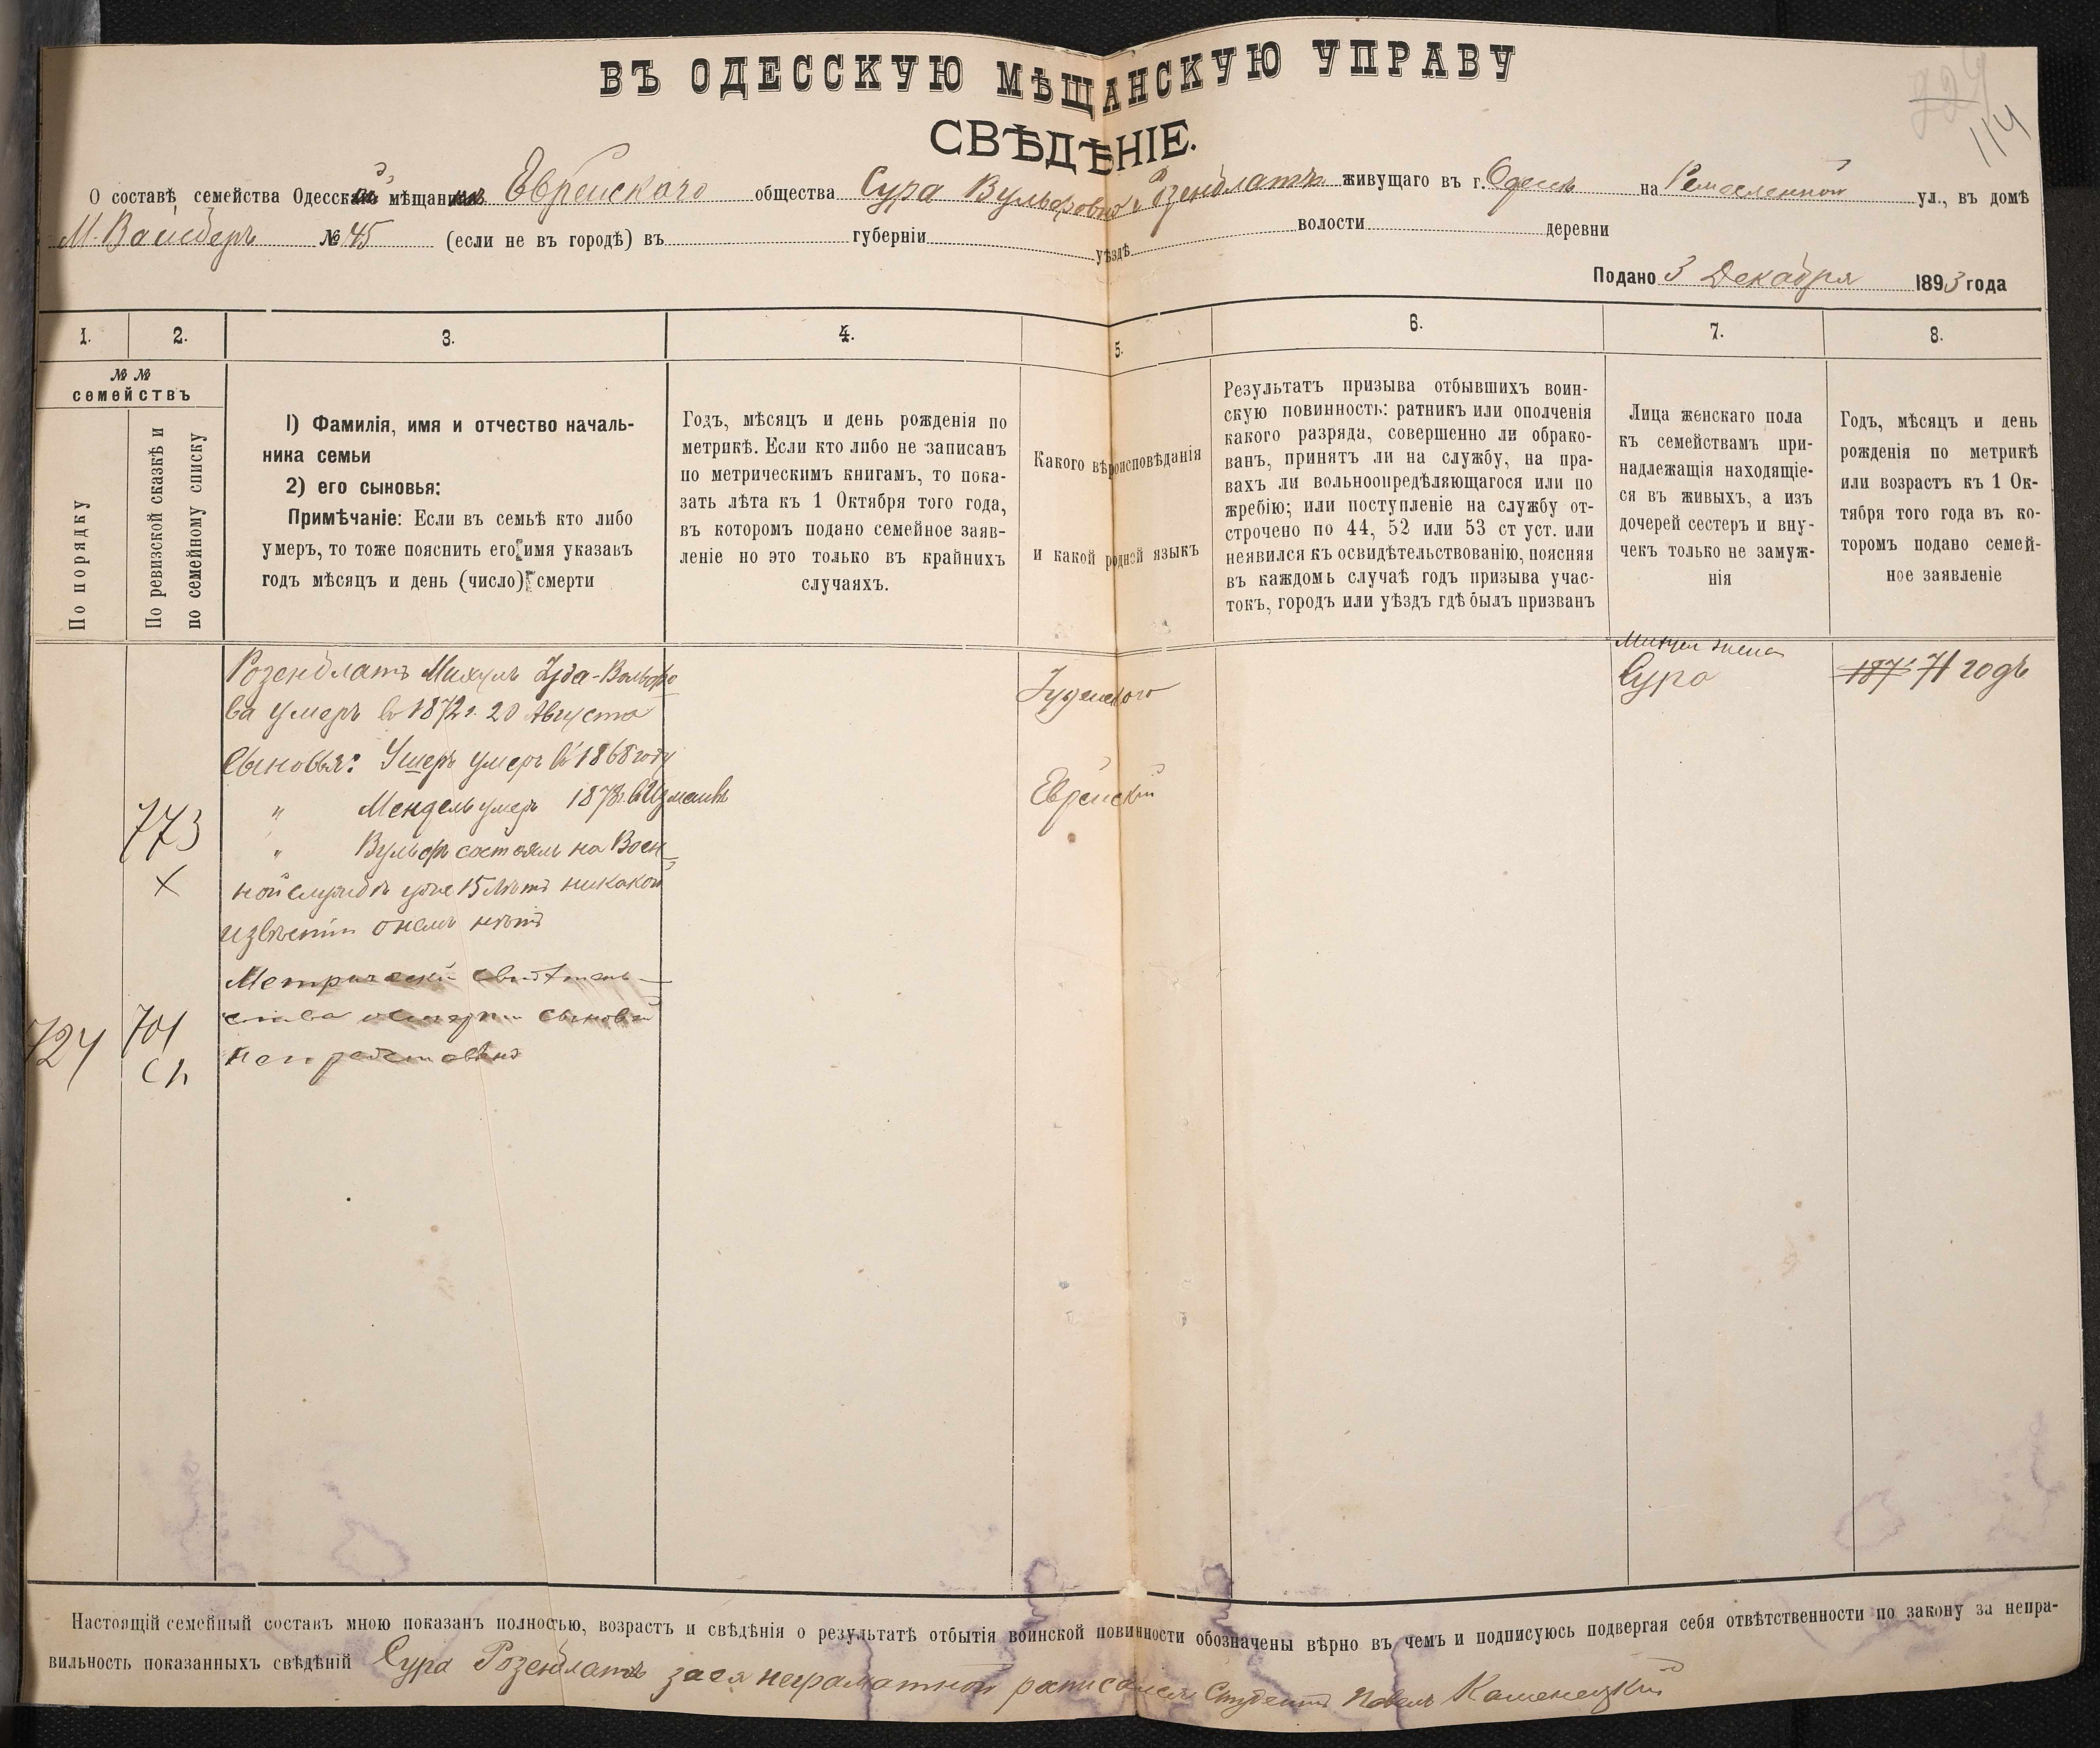 ВЪ ОДЕССКУЮ МѢЩАНСКУЮ УПРАВУ
СВѢДѢНІЕ.
224
114
О составѣ семейства Одесск мѣщан Еврейскаго общества Сура Вульфовна Розенблатъ живущаго въ г. Одессѣ на Ремесленной ул., въ домѣ
М. Вайсберъ № 45 (если не въ городѣ) въ губерніи уѣздѣ волости деревни
Подано 3 Декабря 1893 года
1. 2. 3. 4. 5. 6. 7. 8.
№ №
семействъ
По порядку
По ревизской сказкѣ и
по семейному списку
1) Фамилія, имя и отчество началь-
ника семьи
2) его сыновья:
Примѣчаніе: Если въ семьѣ кто либо
умеръ, то тоже пояснить его имя указавъ
годъ мѣсяцъ и день (число) смерти
Годъ, мѣсяцъ и день рожденія по
метрикѣ. Если кто либо не записанъ
по метрическимъ книгамъ, то пока-
зать лѣта къ 1 Октября того года,
въ которомъ подано семейное заяв-
леніе но это только въ крайнихъ
случаяхъ.
Какого вѣроисповѣданія
и какой родной языкъ
Результатъ призыва отбывшихъ воин-
скую повинность: ратникъ или ополченія
какого разряда, совершенно ли обрако-
ванъ, принятъ ли на службу, на пра-
вахъ ли вольноопредѣляющагося или по
жребію; или поступленіе на службу от-
строчено по 44, 52 или 53 ст уст. или
неявился къ освидѣтельствованію, поясняя
въ каждомъ случаѣ годъ призыва учас-
токъ, городъ или уѣздъ гдѣ былъ призванъ
Лица женскаго пола
къ семействамъ при-
надлежащія находящіе-
ся въ живыхъ, а изъ
дочерей сестеръ и вну-
чекъ только не замуж-
нія
Годъ, мѣсяцъ и день
рожденія по метрикѣ
или возрастъ къ 1 Ок-
тября того года въ ко-
торомъ подано семей-
ное заявленіе
Розенблатъ Михель Іуда-Вольфо
ва умеръ въ 1872 г. 20 Августа
Сыновья: Ушеръ умеръ въ 1868 году
" Мендель умеръ 1873 г. въ Измаилѣ
" Вульфъ состоялъ на Воен-
ной службѣ уже 15 лѣтъ никакой
извѣстіи о немъ нѣтъ
Метрически свидѣтель-
ства о смерти сыновей
непредставлено
773
×
724
701
сп
Іудейскаго
Еврейскій
Михеля жена
Сура
187 71 годъ
Настоящій семейный составъ мною показанъ полностью, возрастъ и свѣдѣнія о результатѣ отбытія воинской повинности обозначены вѣрно въ чемъ и подписуюсь подвергая себя отвѣтственности по закону за непра-
вильность показанныхъ свѣдѣній Сура Розенблатъ за ея неграматной росписался Студентъ Павелъ Каменецкій